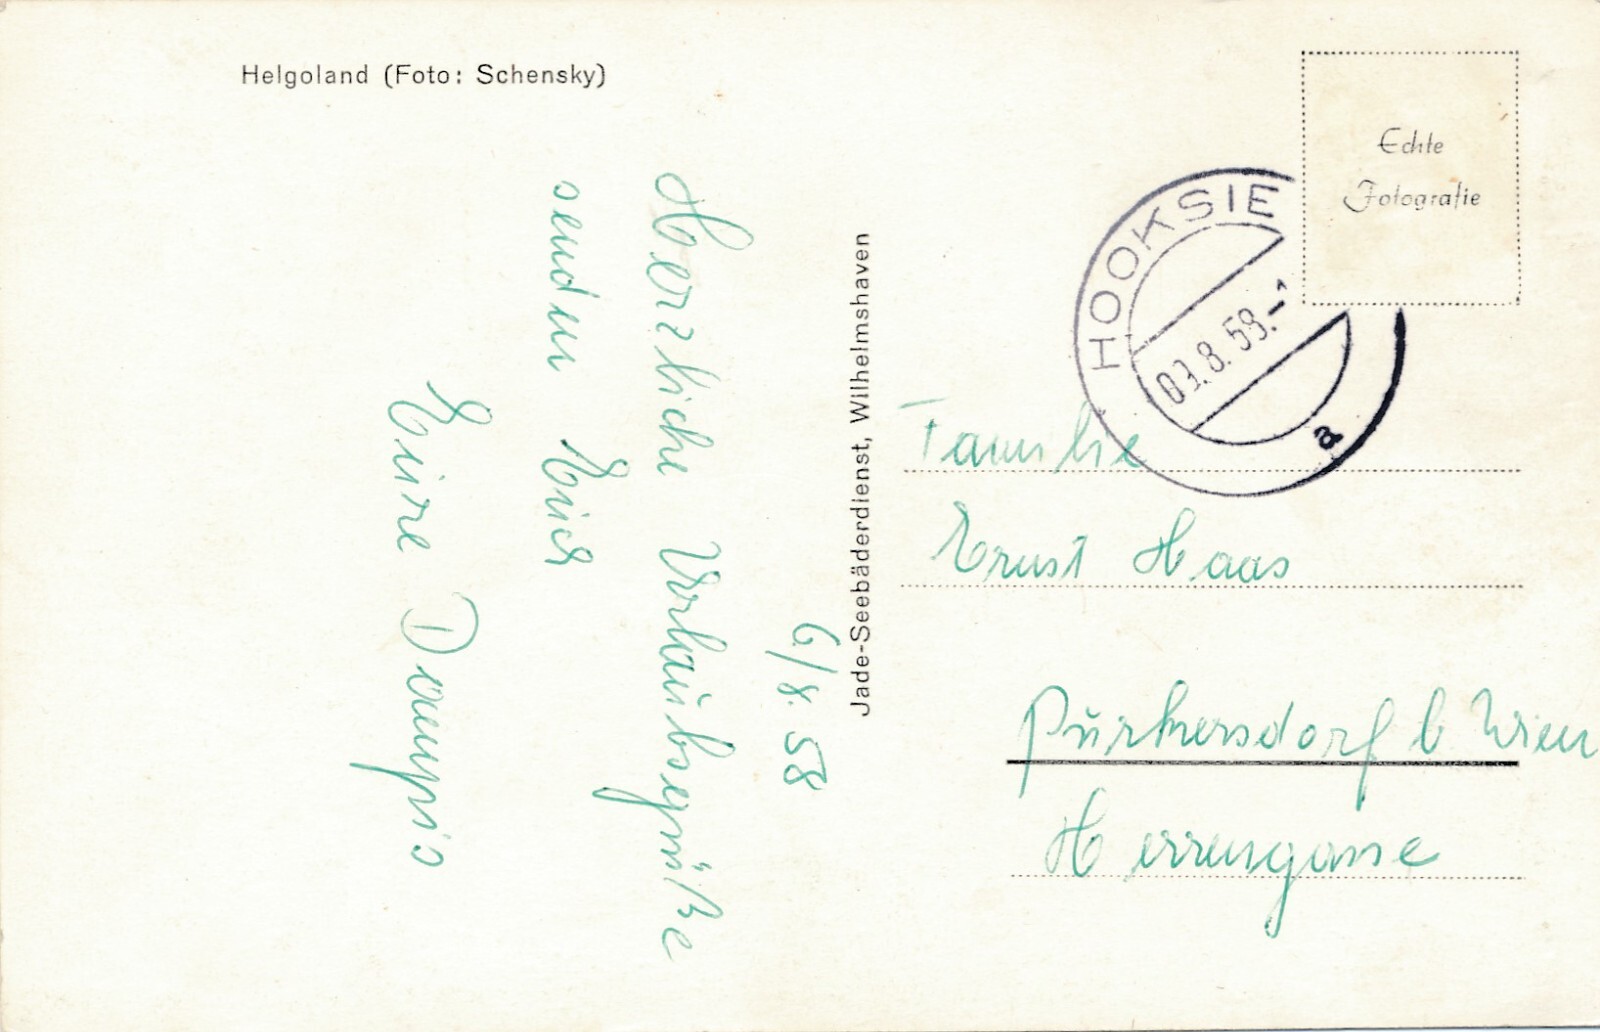 Helgoland (Foto: Schensky)
Echte
Fotografie
HOOKSIE
8.58.-
a
Jade-Seebäderdienst, Wilhelmshaven
6/8. 58
Herzliche Urlaubsgrüße
senden Euch
Eure
Familie
Ernst Haas
Purkersdorf b Wien
Herrengasse